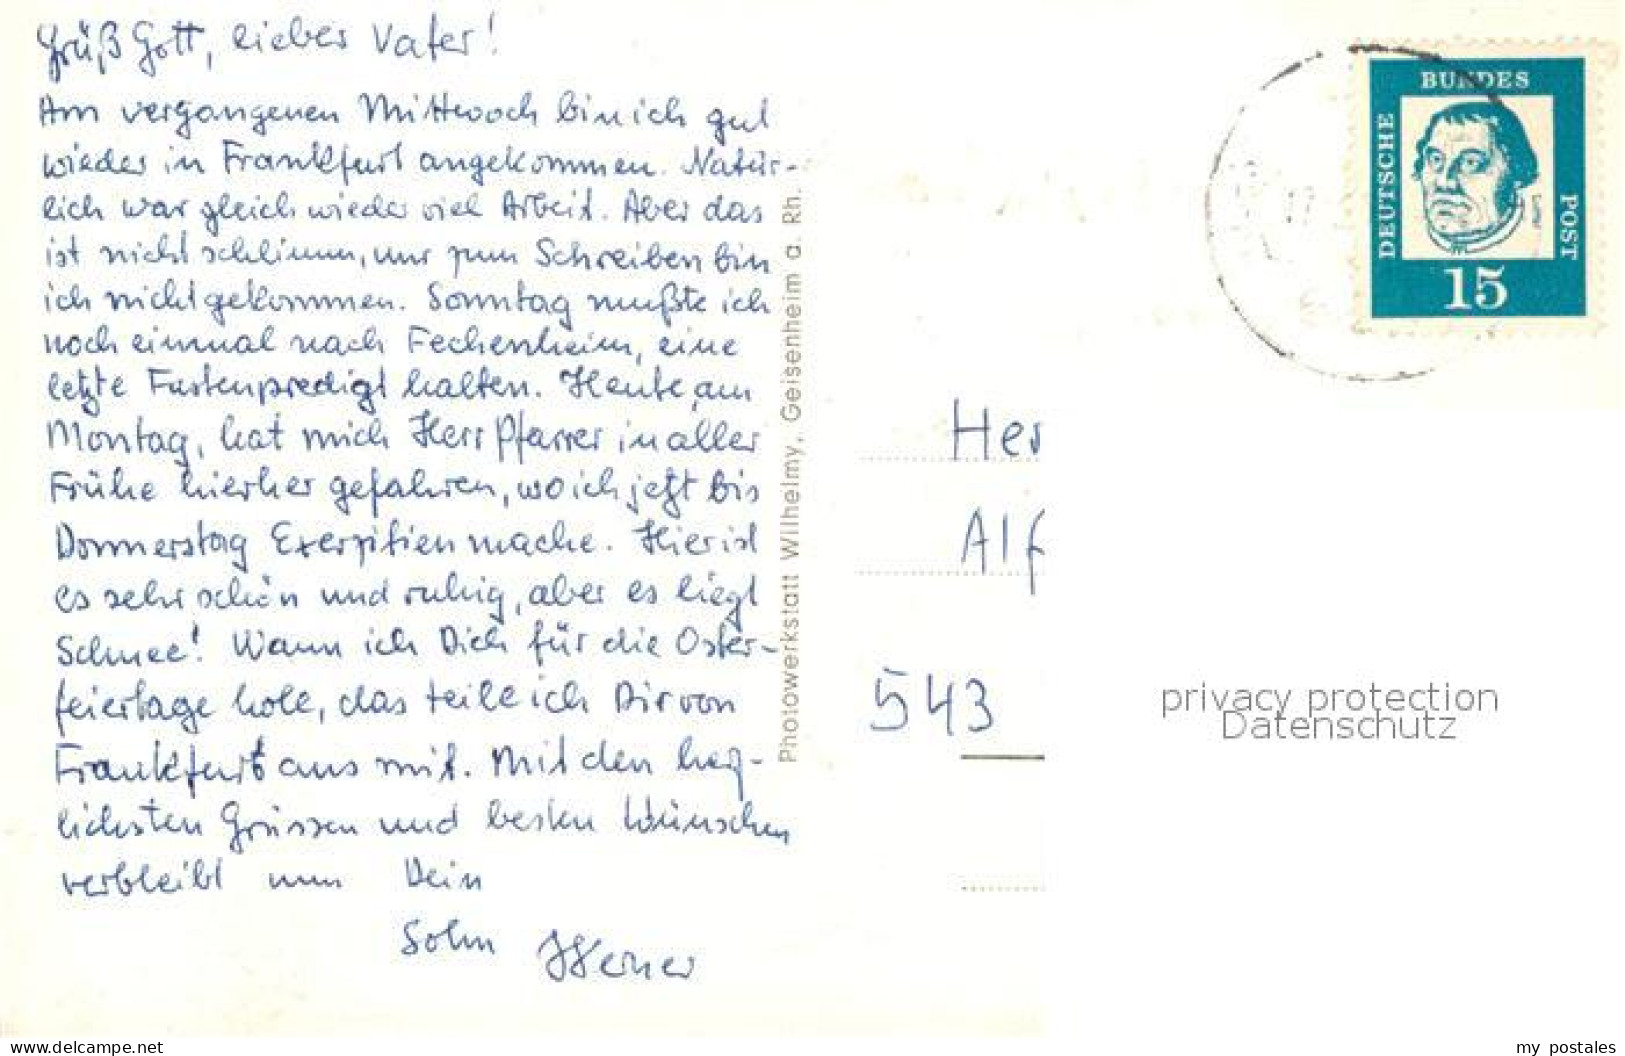 Grüß Gott, lieber Vater!
Am vergangenen Mittwoch bin ich gut
wieder in Frankfurt angekommen. Natür-
lich war gleich wieder viel Arbeit. Aber das
ist nicht schlimm, nur zum Schreiben bin
ich nicht gekommen. Sonntag mußte ich
noch einmal nach Fechenheim, eine
letzte Fastenpredigt halten. Heute, am
Montag, hat mich Herr Pfarrer in aller
Frühe hierher gefahren, wo ich jetzt bis
Donnerstag Exerzitien mache. Hier ist
es sehr schön und ruhig, aber es liegt
Schnee! Wann ich Dich für die Oster-
feiertage hole, das teile ich Dir von
Frankfurt aus mit. Mit den herz-
lichsten Grüssen und besten Wünschen
verbleibt nun Dein
Sohn Werner
Photowerkstatt Wilhelmy, Geisenheim a. Rh.
DEUTSCHE
BUNDES
POST
15
Her
Alf
543
privacy protection
Datenschutz
www.delcampe.net
my postales